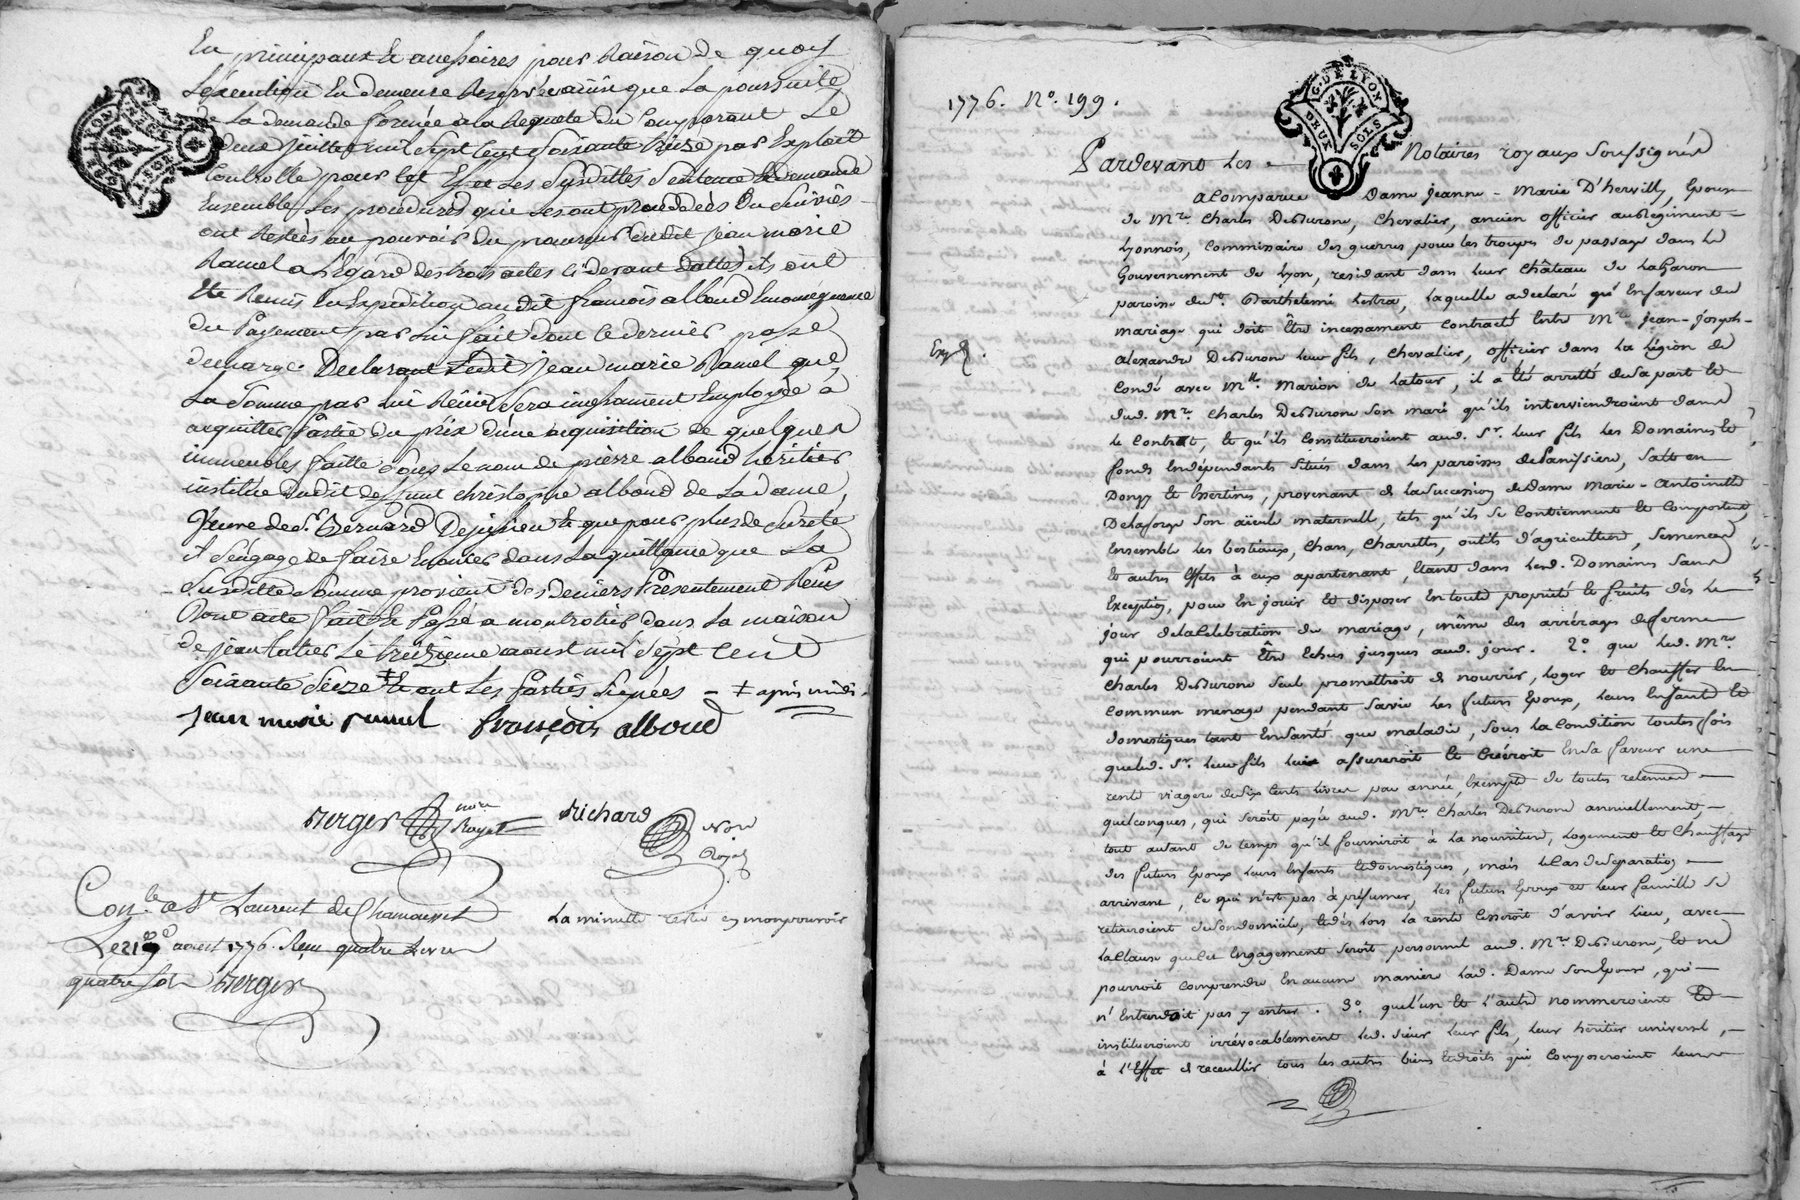 En principaux et accessoires pour Raison de quoy
L'exécution En demeure Reservée ainsi que La poursuitte
de La demande formée a la Requete du Comparant Le
douze juillet mil sept Cent soixante treize par Exploit
Controllé pour Cet Effet Les Susdittes Sentence et demande
Ensemble Les procedures qui Se sont
ont Restées au pouvoir du procureur dudit jean marie
Ramel a L'égard des trois actes Ci devant dattés ils ont
Eté Remis En Expedition audit françois alboud
du Payement par lui fait dont le dernier passé
Declarant Ledit jean marie Ramel que
La Somme par lui Réçue Sera incessament Employée à
acquitter Partie du prix d'une acquisition de quelques
immeubles faitte Sous Le nom de pierre alboud héritier
institué dudit deffunt christophe alboud de La dame
veuve de Sr. Bernard Dejussieu Et que pour plus de Sureté
il S'engage de faire Enoncer dans La quittance que La
Susditte Somme provient des deniers Présentement Réçus
Dont acte fait Et Passé a montrotier dans La maison
de jean Le treizieme aoust mil Sept Cent
Soixante Seize ‡ Et ont Les Parties Signées = ‡ apres midi
jean marie ramel françois alboud
Berger nore Royal Richard Nore Royal
Con.lé a St Laurent de Chamousset La minutte restée en mon pouvoir
Le 21 aoust 1776. Reçu quatre Livres
quatre Sols Berger
G. DE LYON
G. DE LYON DEUX SOLS
1776. No. 199.
Pardevant Les Notaires royaux Soussignés
a Comparue Dame Jeanne-Marie D'hervilly, Epouse
de Mre. Charles DesBurons, Chevalier, ancien officier au Regiment
Lyonnois, Commissaire des guerres pour les troupes de passage dans Le
Gouvernement de Lyon, residant dans leur Château de LaGaron
paroisse de St. Barthelemi Lestra, laquelle a déclaré qu'en faveur du
mariage qui doit Être incessament Contracté Entre Mre jean-joseph-
alexandre DesBurons leur fils, Chevalier, officier dans La Légion de
Condé avec Mlle. Marion de Latour, il a Eté arretté de Sa part Et
dud. Mr. Charles DesBurons Son mari qu'ils interviendroient dans
le Contrat, Et qu'ils Constitueroient aud. Sr. leur fils Les Domaines Et
fonds indépendants Situés dans les paroisses de Panissiere, Salt en
Donzy Et Essertines, provenant de la Succession de Dame Marie-Antoinette
Delaforge Son aïeule maternelle, tels qu'ils Se Contiennent Et Comportent,
Ensemble Les bestiaux, Chars, Charrettes, outils d'agriculture, Semences
Et autres Effets à eux apartenant, Etant dans lesd. Domaines Sans
Exception, pour En jouir Et disposer En toute propriété Et fruits dès Le
jour de la Celebration du mariage, même des arrérages de ferme
qui pourroient Être Echus jusques aud. jour. 2º. que Led. Mre.
Charles DesBurons Seul promettroit de nourrir, loger Et Chauffer En
Commun menage pendant Sa vie Les futurs Epoux, Leurs Enfants Et
domestiques tant En Santé que maladie, Sous La Condition toutes fois
que led. Sr. Leur fils lui assureroit Et Créeroit En Sa faveur une
rente viagere de Six Cents Livres par année, Exempte de toutes retenues
quelconques, qui Seroit payée aud. Mre. Charles DesBurons annuellement,
tout autant de temps qu'il fourniroit à La nourriture, Logement Et Chauffage
des futurs Epoux Leurs Enfants Et domestiques, mais le Cas de Separation
arrivant, Ce qui n'est pas à présumer, les futurs Epoux et leur famille Se
retireroient de Son domicile, Et dès Lors la rente Cesseroit d'avoir Lieu, avec
La Clause que Cet Engagement Seroit personnel aud. Mre. DesBurons, Et ne
pourroit Comprendre En aucune maniere Lad. Dame Son Epouse, qui
n'Entendoit pas y entrer. 3º. que l'un Et L'autre nommeroient Et
institueroient irrévocablement Led. Sieur Leur fils, Leur héritier universel,
à l'Effet de recueillir tous les autres biens Et droits qui Composeroient Leurs